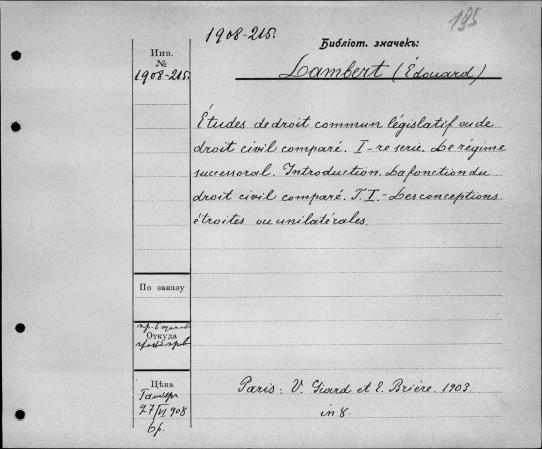 1908-215.
195
Библіот. значекъ:
Инв.
№
1908-215.
Lambert (Édouard)
Études de droit commun législatif ou de
droit civil comparé. I-re serie. Le régime
successoral. Introduction. La fonction du
droit civil comparé. T. I. - Les conceptions
étroites ou unilatérales.
По заказу
Откуда
Цѣна
27/VI 908
6 р.
Paris: V. Giard et E. Brière. 1903.
in 8.